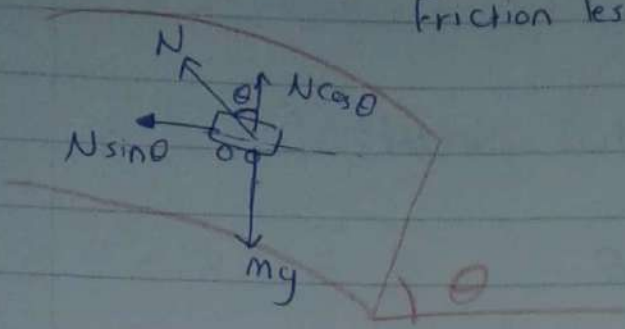 friction les
N
θ
N cos θ
N sin θ
mg
θ